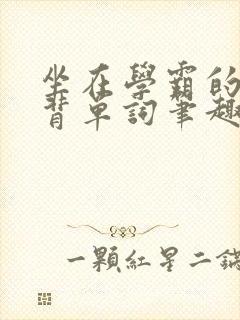 坐在學霸的
背單詞筆趣
一顆紅星二鍋